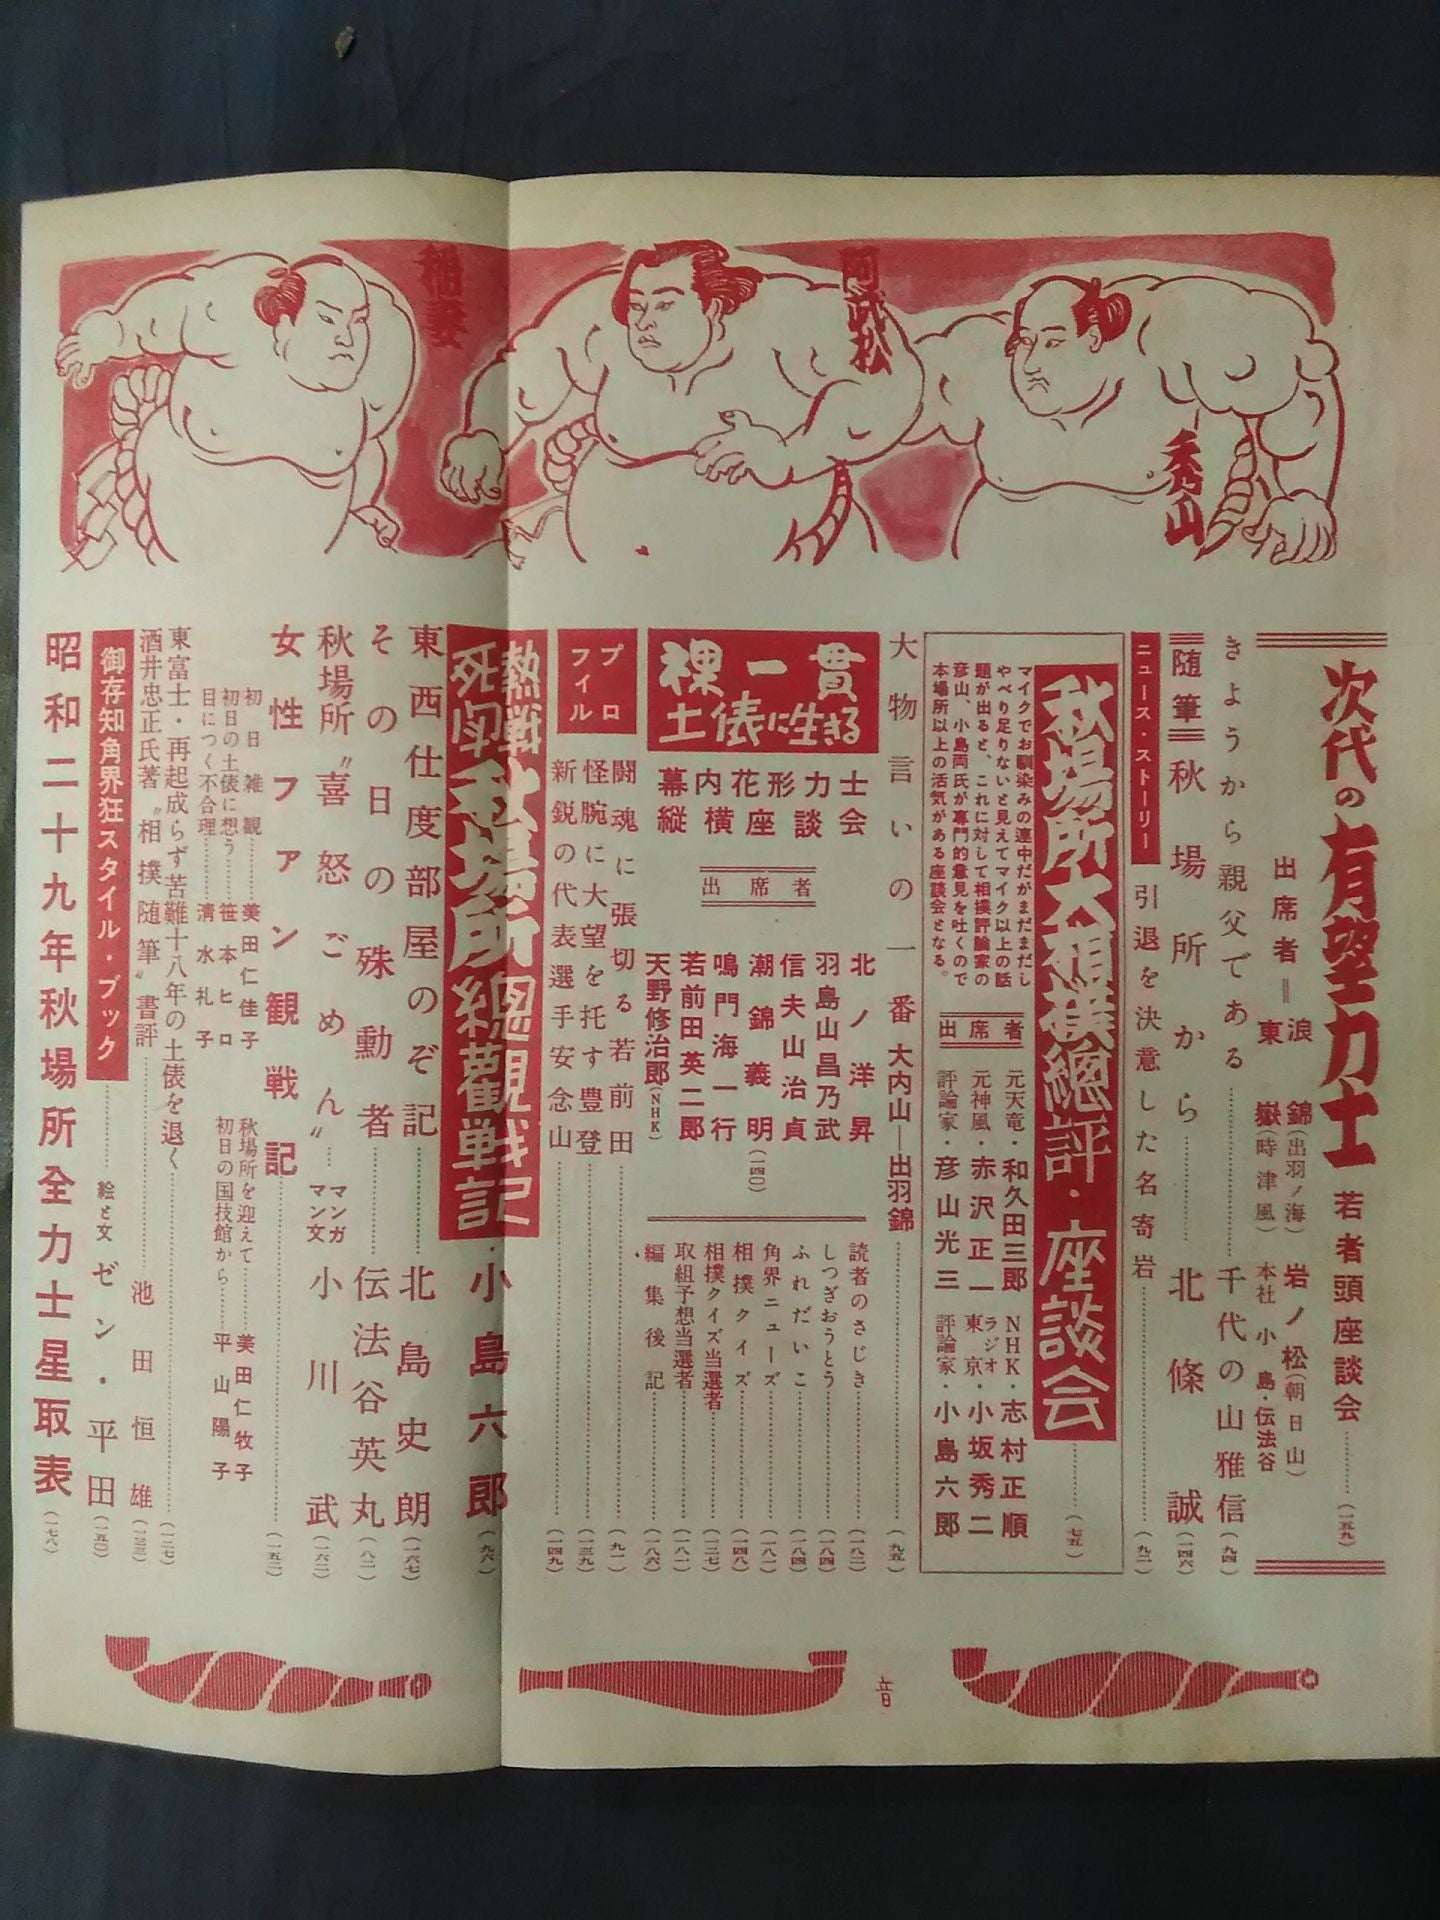 稲妻
阿武松
秀山
次代の有望力士 若者頭座談会……(一五九)
出席者＝浪ノ錦(出羽ノ海) 岩ノ松(朝日山)
東嶽(時津風) 本社 小島・伝法谷
きようから親父である……千代の山雅信(九四)
随筆 秋場所から……北條誠(一四六)
ニュース・ストーリー 引退を決意した名寄岩……(九二)
秋場所大相撲総評・座談会……(七五)
マイクでお馴染みの連中だがまだまだし
やべり足りないと見えてマイク以上の話
題が出ると、これに対して相撲評論家の
彦山、小島両氏が専門的意見を吐くので
本場所以上の活気がある座談会となる。
出席者
元天竜・和久田三郎 NHK・志村正順
元神風・赤沢正一 ラジオ東京・小坂秀二
評論家・彦山光三 評論家・小島六郎
大物言いの一番 大内山―出羽錦……(九五)
裸一貫
土俵に生きる
幕内花形力士
縦横座談会
出席者
北ノ洋昇
羽島山昌乃武
信夫山治貞
潮錦義明(一四〇)
鳴門海一行
若前田英二郎
天野修治郎(NHK)
読者のさじき……(一八二)
しつぎおうとう……(一八四)
ふれだいこ……(一八四)
角界ニューズ……(一八一)
相撲クイズ……(一四八)
相撲クイズ当選者……(一二七)
取組予想当選者……(一八一)
編集後記……(一八六)
プロフイル
闘魂に張切る若前田……(九一)
怪腕に大望を托す豊登……(一三九)
新鋭の代表選手安念山……(一四九)
熱戦死闘 秋場所總観戦記・小島六郎(九六)
東西仕度部屋のぞ記……北島史朗(一六七)
その日の殊勲者……伝法谷英丸(八二)
秋場所〝喜怒ごめん〟…マンガマン文 小川武(一六二)
女性ファン観戦記……(一五二)
初日雑観……美田仁佳子
初日の土俵に想う……笹本ヒロ
目につく不合理……清水礼子
秋場所を迎えて……美田仁牧子
初日の国技館から……平山陽子
東富士・再起成らず苦難十八年の土俵を退く……(一二七)
酒井忠正氏著〝相撲随筆〟書評……池田恒雄(一三三)
御存知角界狂スタイル・ブック……絵と文 ゼン・平田(一五〇)
昭和二十九年秋場所全力士星取表(一七八)
音